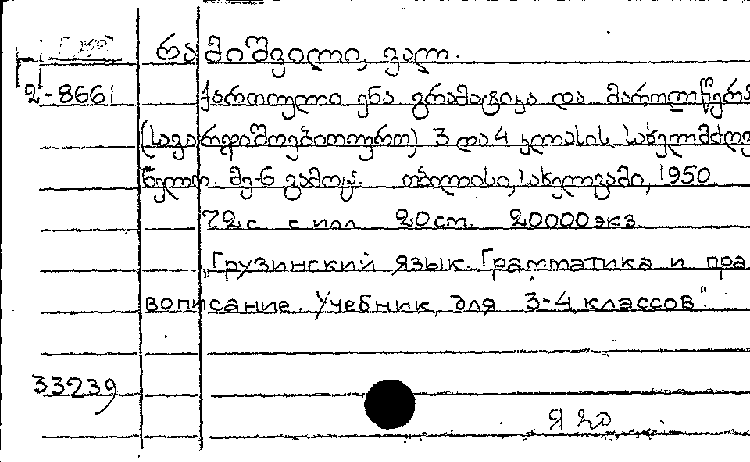 რამიშვილი, ვალ.
2-8661
ქართული ენა გრამატიკა და მართლწერა
(სავარჯიშოებითურთ) 3 და 4 კლასის სახელმძღვ
მე-6 გამოც. თბილისი, სახელგამი, 1950
72с с илл 20см. 20000 экз.
"Грузинский язык. Грамматика и пра
вописание. Учебник для 3-4 классов".
33239